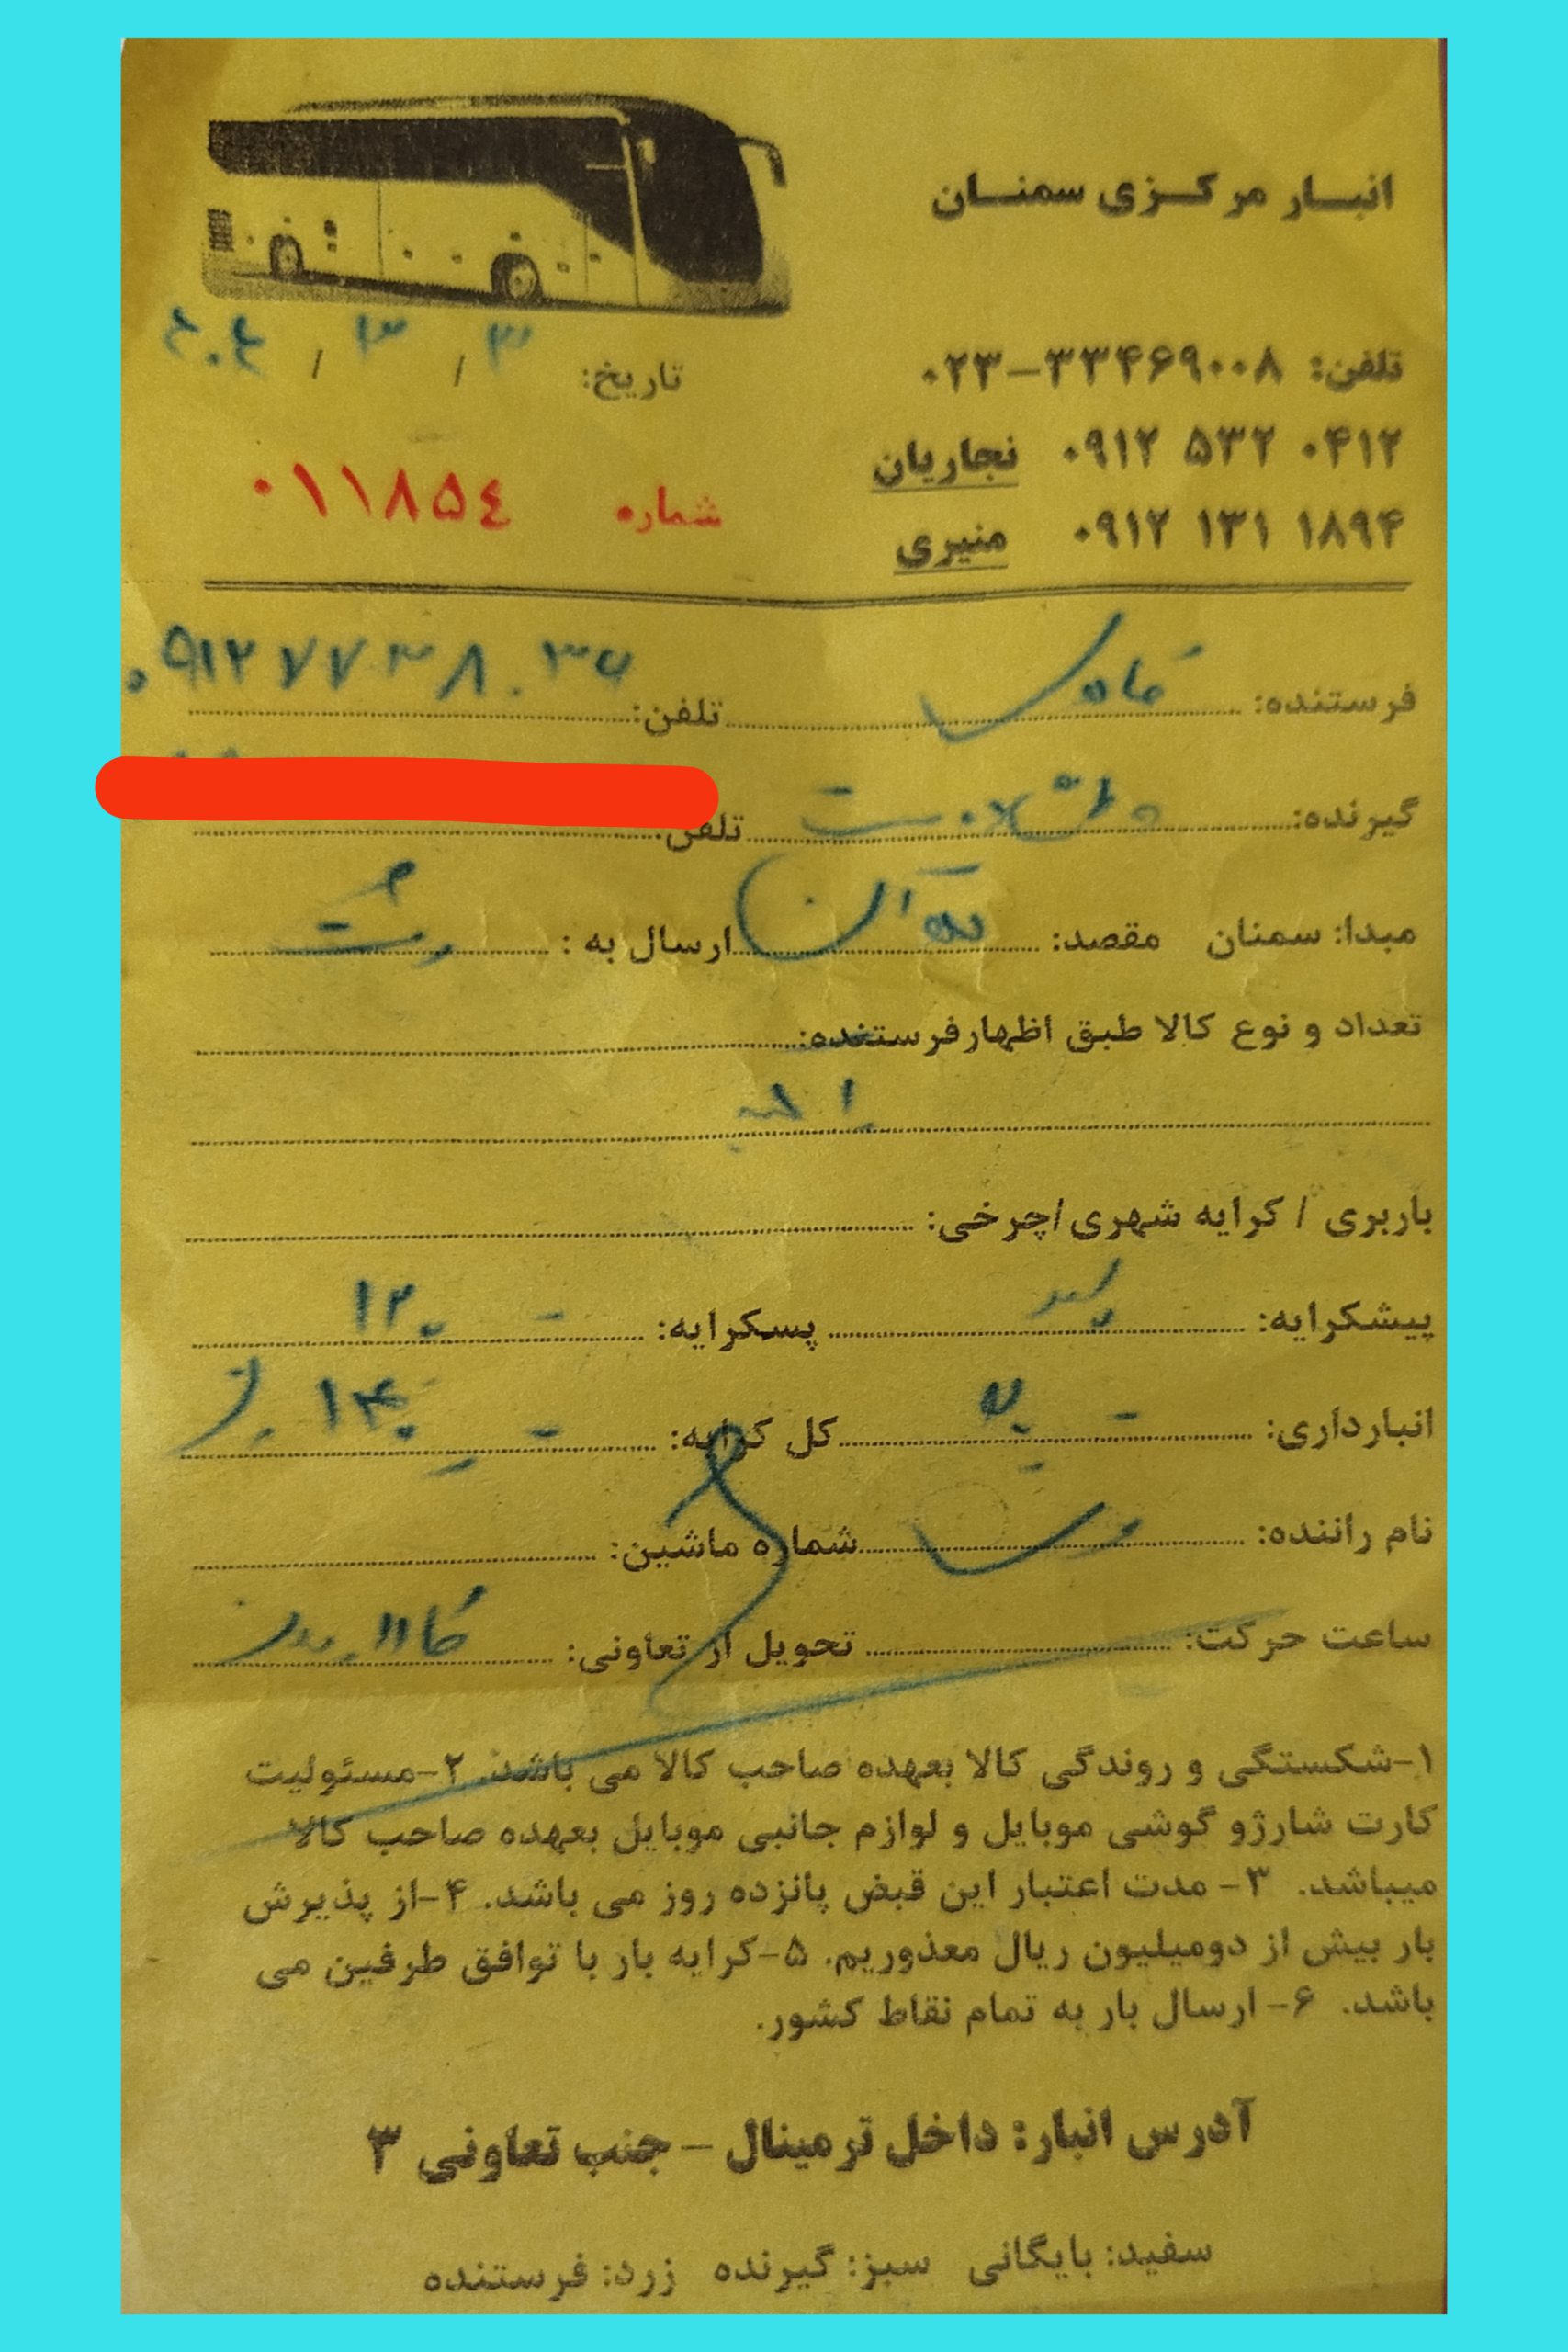 انبار مرکزی سمنان
تلفن: ۳۳۴۶۹۰۰۸-۰۲۳
تاریخ: ۳ / ۱۳ / ۴۰۴
۰۹۱۲ ۵۳۲ ۰۴۱۲ نجاریان
شماره ۰۱۱۸۵۴
۰۹۱۲ ۱۳۱ ۱۸۹۴ منیری
فرستنده: تلفن:
گیرنده: تلفن:
مبدا: سمنان مقصد: تهران ارسال به : رشت
تعداد و نوع کالا طبق اظهارفرستنده:
باربری / کرایه شهری/چرخی:
پیشکرایه: پسکرایه: ۱۲۰
انبارداری: ۲۰ کل کرایه: ۱۴۰
نام راننده: شماره ماشین:
ساعت حرکت: تحویل از تعاونی:
۱-شکستگی و روندگی کالا بعهده صاحب کالا می باشد. ۲-مسئولیت
کارت شارژو گوشی موبایل و لوازم جانبی موبایل بعهده صاحب کالا
میباشد. ۳- مدت اعتبار این قبض پانزده روز می باشد. ۴-از پذیرش
بار بیش از دومیلیون ریال معذوریم. ۵-کرایه بار با توافق طرفین می
باشد. ۶- ارسال بار به تمام نقاط کشور.
آدرس انبار: داخل ترمینال - جنب تعاونی ۳
سفید: بایگانی سبز: گیرنده زرد: فرستنده